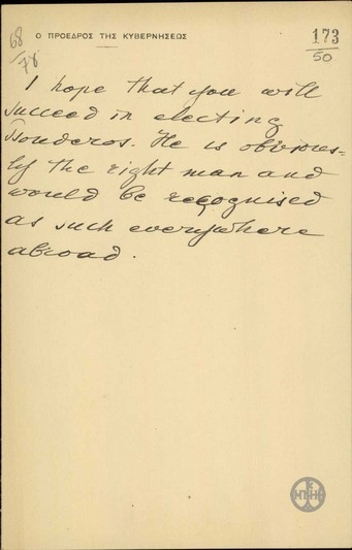 68
/78
Ο ΠΡΟΕΔΡΟΣ ΤΗΣ ΚΥΒΕΡΝΗΣΕΩΣ
173
50
I hope that you will
succeed in electing
Tsouderos. He is obvious-
ly the right man and
would be recognised
as such everywhere
abroad.